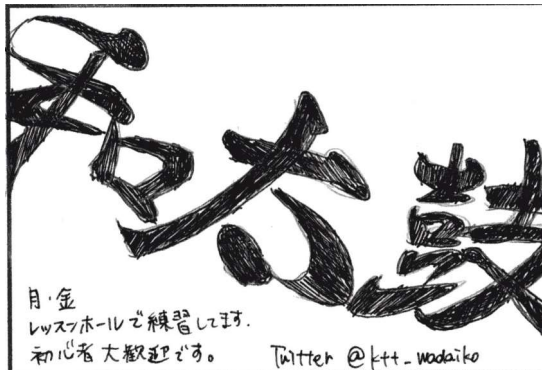 和太鼓
月・金
レッスンホールで練習してます.
初心者大歓迎です。
Twitter @ktt_wadaiko